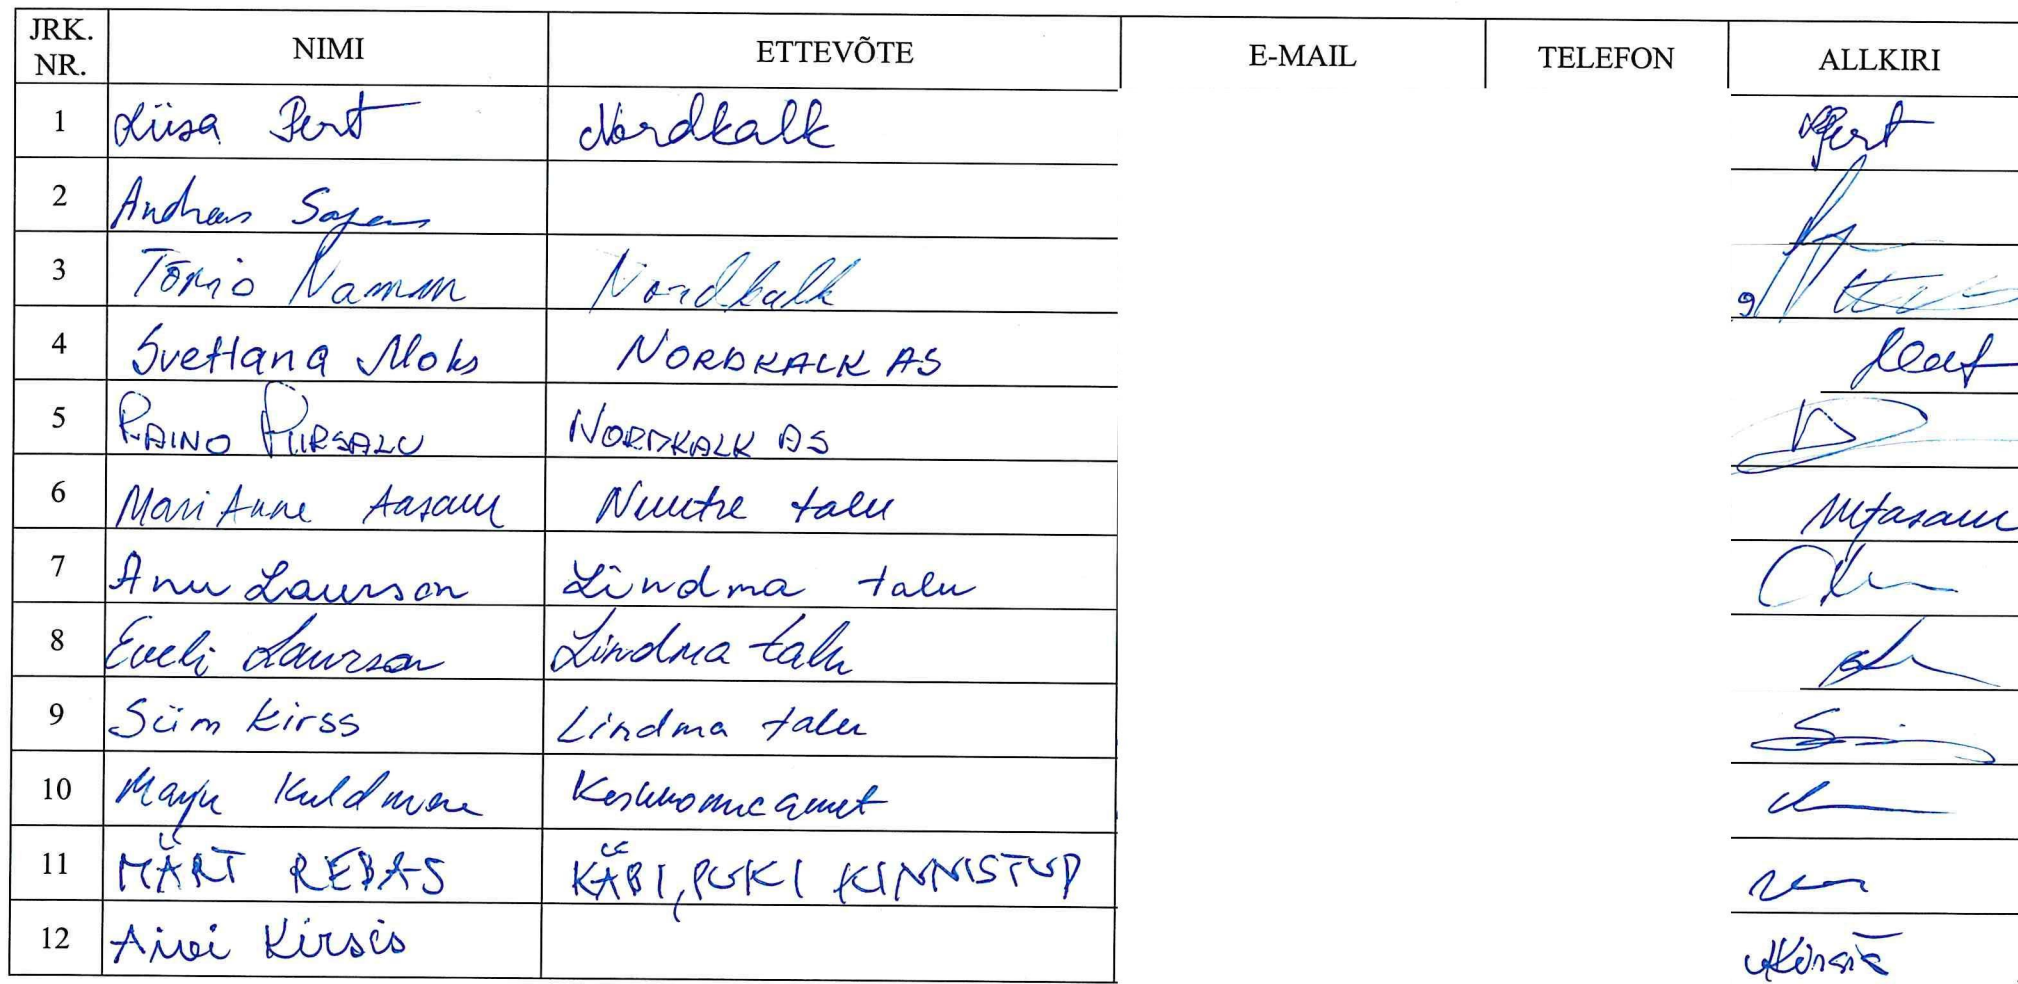 JRK. NR. NIMI ETTEVÕTE E-MAIL TELEFON ALLKIRI
1 Liisa Pert Nordkalk Pert
2 Andreas
3 Tõnis Namm Nordkalk
4 Svetlana Moks NORDKALK AS
5 RAINO PIIRSALU NORDKALK AS
6 Mari Anne Aasam Nuutre talu MAasam
7 Anu Laurson Lindma talu
8 Eveli Laurson Lindma talu
9 Siim Kirss Lindma talu
10 Kuldmere Keskkonnaamet
11 MÄRT REBAS KÄBI, PUKI KINNISTUD
12 Aivi Kirsis